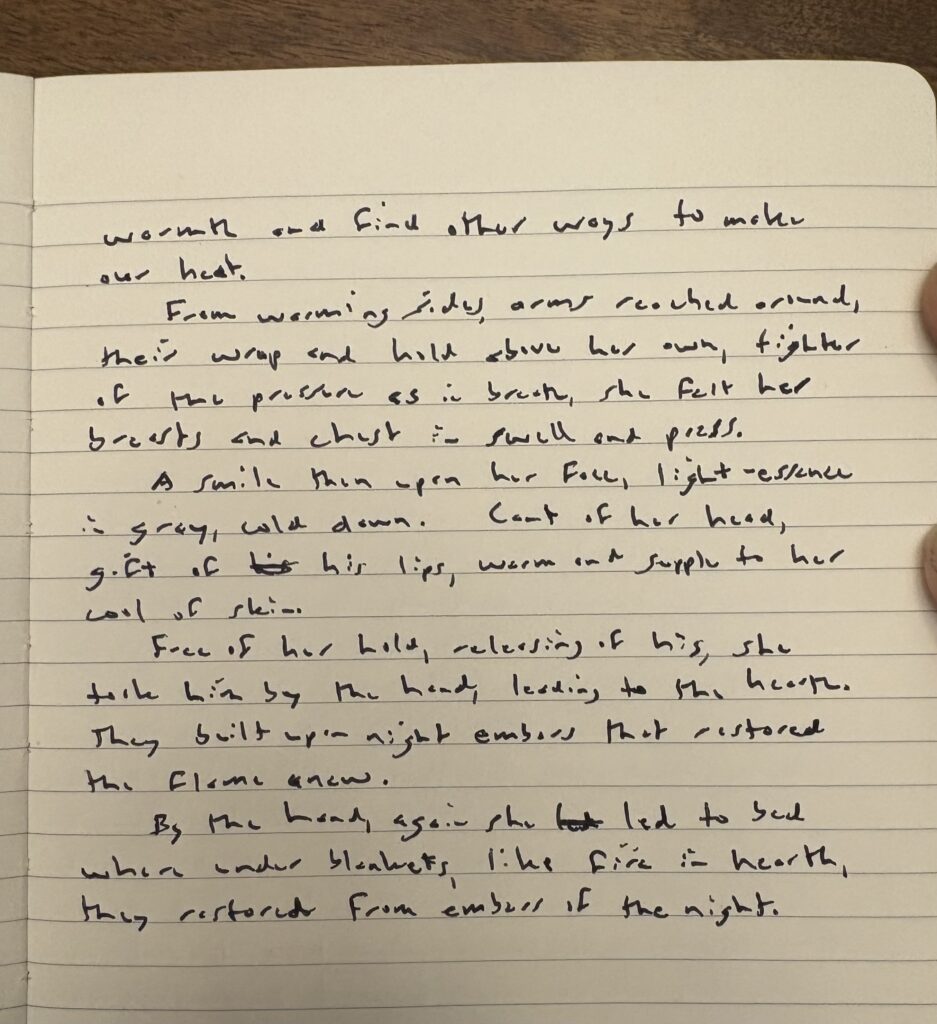 warmth and find other ways to make
our heat.
From warming sides, arms reached around,
their wrap and hold above her own, tighter
of the pressure as in breath, she felt her
breasts and chest in swell and press.
A smile then upon her face, light-essence
in gray, cold dawn. Cant of her head,
gift of his lips, warm and supple to her
cool of skin.
Free of her hold, releasing of his, she
took him by the hand, leading to the hearth.
They built upon night embers that restored
the flame anew.
By the hand, again she led to bed
where under blankets, like fire in hearth,
they restored from embers of the night.